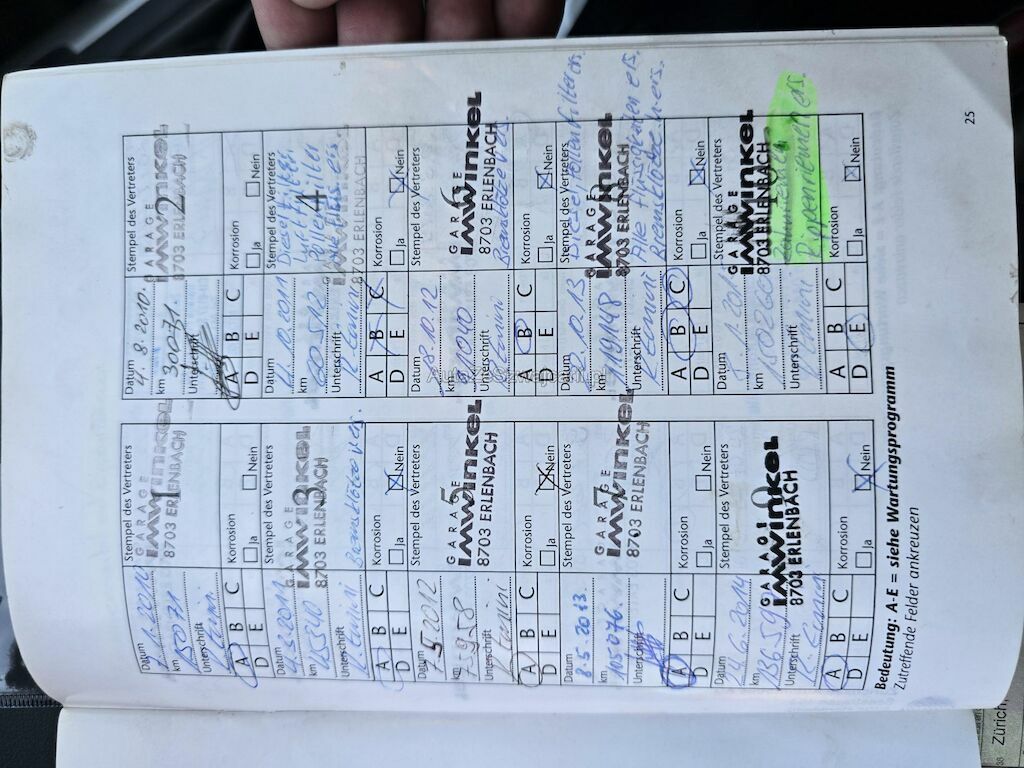 Datum
7.1.2010
km
15071
Unterschrift
A B C
D E
Stempel des Vertreters
GARAGE
IMWINKEL
8703 ERLENBACH
1
Korrosion
Ja Nein
Datum
4. 8. 2010
km
30071
Unterschrift
A B C
D E
Stempel des Vertreters
GARAGE
IMWINKEL
8703 ERLENBACH
2
Korrosion
Ja Nein
Datum
4.03.2011
km
45340
Unterschrift
A B C
D E
Stempel des Vertreters
GARAGE
IMWINKEL
8703 ERLENBACH
3
Korrosion
Ja Nein
Datum
11.10.2011
km
60512
Unterschrift
A B C
D E
Stempel des Vertreters
Dieselfilter
Luftfilter
Pollenfilter
IMWINKEL
8703 ERLENBACH
4
Korrosion
Ja Nein
Datum
7.5.2012
km
Unterschrift
A B C
D E
Stempel des Vertreters
GARAGE
IMWINKEL
8703 ERLENBACH
5
Korrosion
Ja Nein
Datum
8.10.12
km
Unterschrift
A B C
D E
Stempel des Vertreters
GARAGE
IMWINKEL
8703 ERLENBACH
6
Korrosion
Ja Nein
Datum
8.5.2013
km
105076
Unterschrift
A B C
D E
Stempel des Vertreters
GARAGE
IMWINKEL
8703 ERLENBACH
7
Korrosion
Ja Nein
Datum
2.10.13
km
119148
Unterschrift
A B C
D E
Stempel des Vertreters
Diesel, Pollenfilter ers.
GARAGE
IMWINKEL
8703 ERLENBACH
Alle Flüssigkeiten ers.
Bremsklötze h ers.
Korrosion
Ja Nein
Datum
24.6.2014
km
Unterschrift
A B C
D E
Stempel des Vertreters
GARAGE
IMWINKEL
8703 ERLENBACH
Korrosion
Ja Nein
Datum
km
150260
Unterschrift
A B C
D E
Stempel des Vertreters
GARAGE
IMWINKEL
8703 ERLENBACH
Zahnriemen
Rippenriemen ers.
Korrosion
Ja Nein
Bedeutung: A-E = siehe Wartungsprogramm
Zutreffende Felder ankreuzen
25
Zürich,